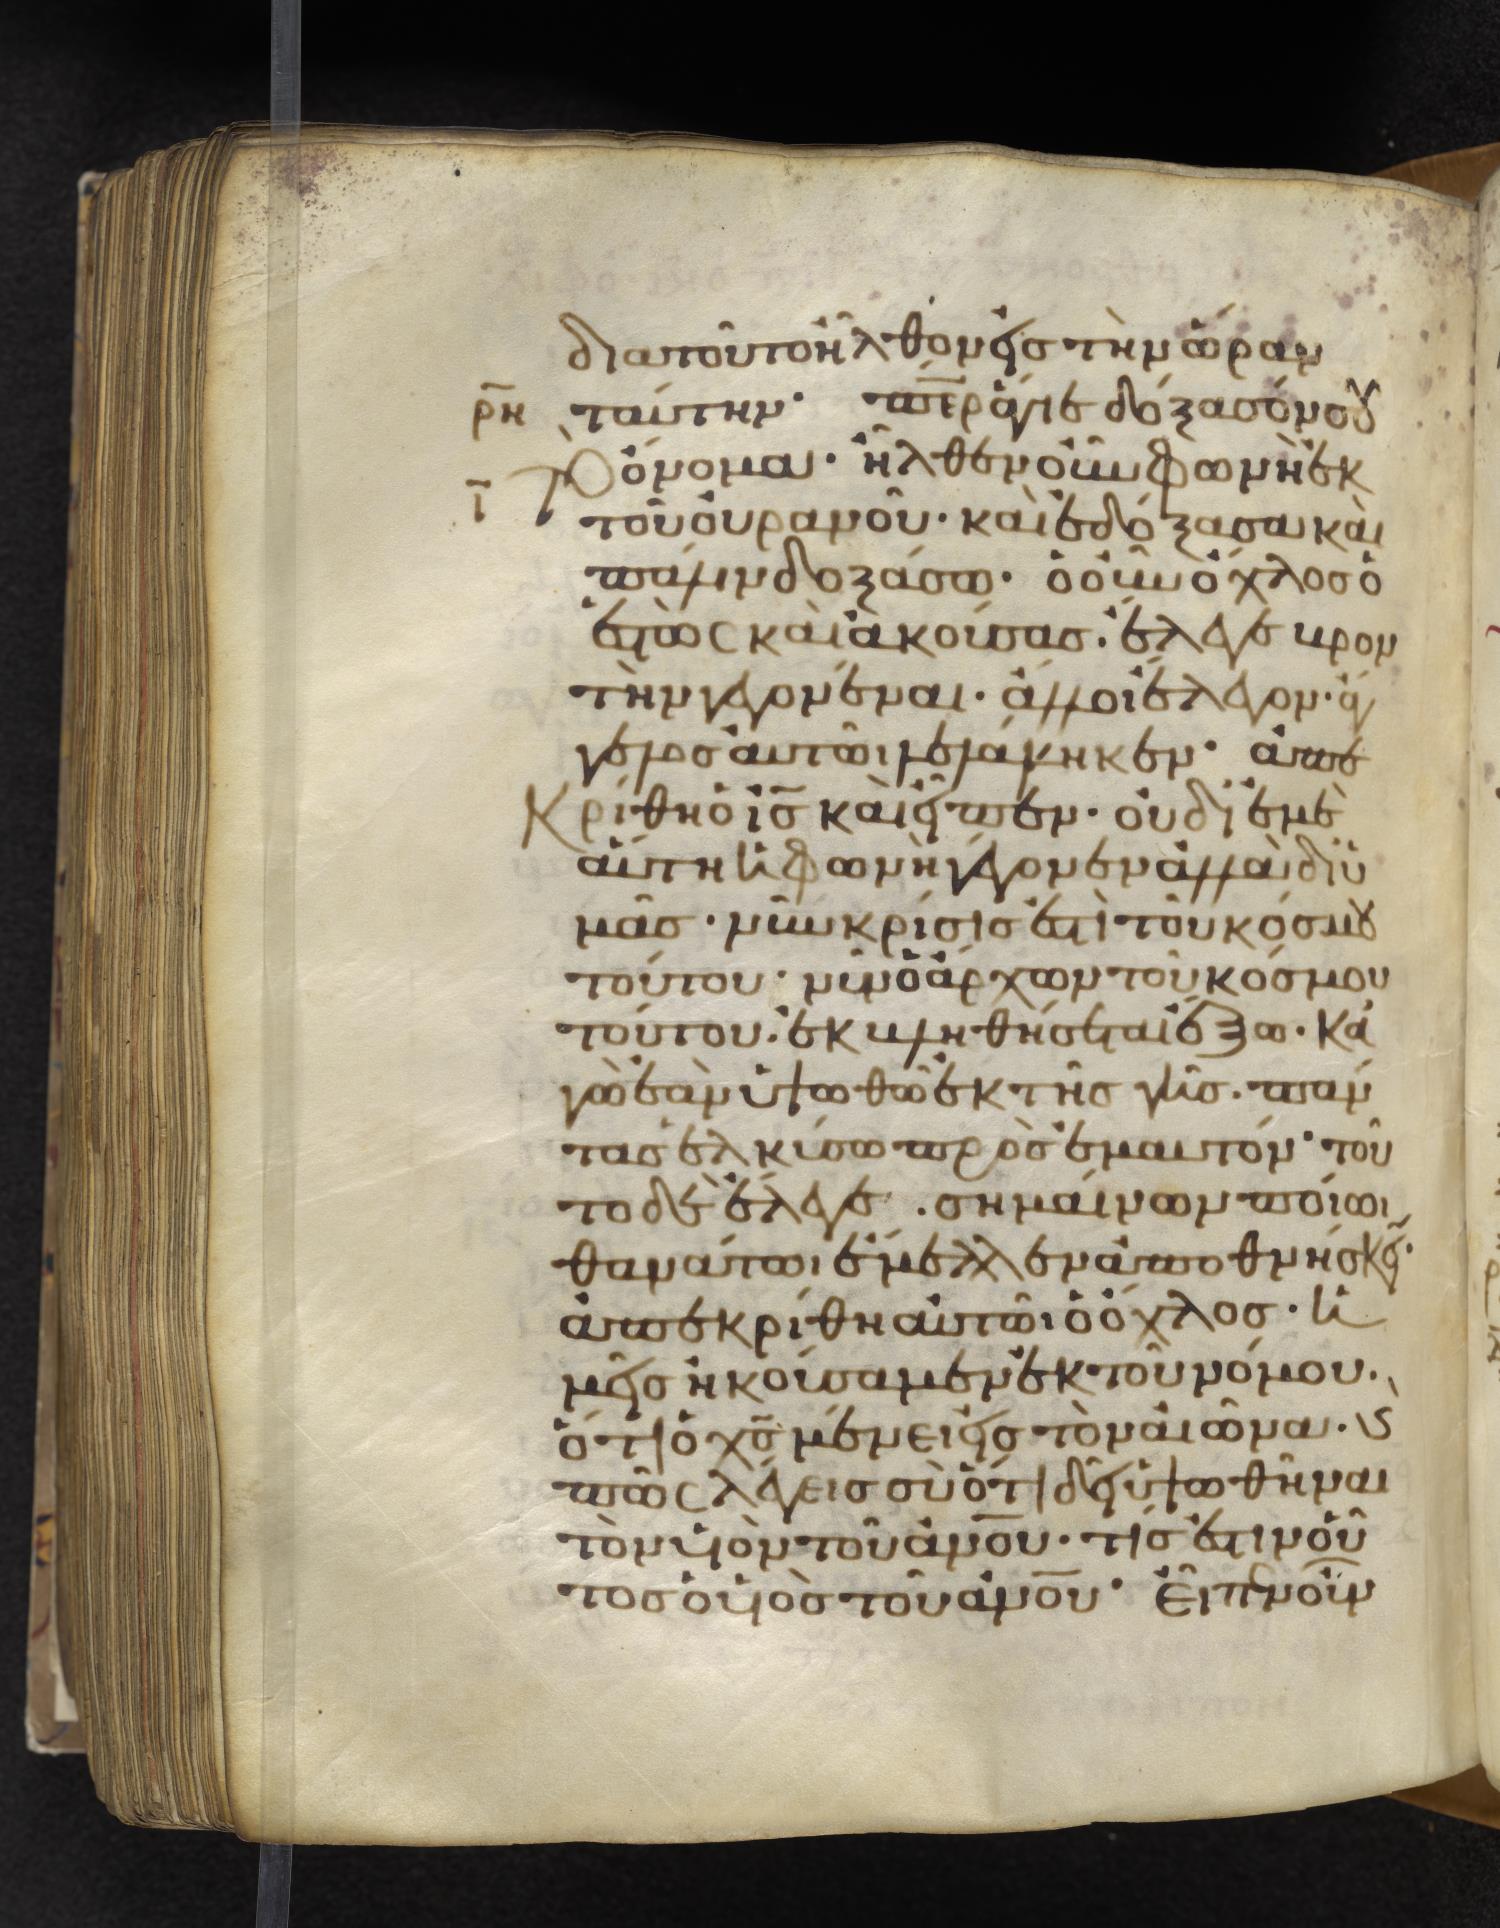 διατοῦτο ἦλθον εἰς τὴν ὥραν
ρη ταύτην· περ ἅγιε δόξασόν σου
ι Τὸ ὄνομα· ἦλθεν οὖν φωνὴ ἐκ
τοῦ οὐρανοῦ· καὶ ἐδόξασα καὶ
πάλιν δοξάσω· ὁ οὖν ὄχλος ὁ
ἑστὼς καὶ ἀκούσας· ἔλεγεν βροντὴν
τὴν γεγονέναι· ἄλλοι ἔλεγον· ἄγ
γελος αὐτῶι λελάληκεν· ἀπε
Κρίθη ὁ ις καὶ εἶπεν· οὐ δι' ἐμὲ
αὕτη ἡ φωνὴ γέγονεν ἀλλὰ δι' ὑ
μᾶς· νῦν κρίσις ἐστὶ τοῦ κόσμου
τούτου· νῦν ὁ ἄρχων τοῦ κόσμου
τούτου· ἐκβληθήσεται ἔξω· Κα
γὼ ἐὰν ὑψωθῶ ἐκ τῆς γῆς· πάν
τας ἑλκύσω πρὸς ἐμαυτόν· τοῦ
το δὲ ἔλεγεν· σημαίνων ποίωι
θανάτωι ἔμελλεν ἀποθνήσκειν·
ἀπεκρίθη αὐτῶι ὁ ὄχλος· ἡ
μεῖς ἠκούσαμεν ἐκ τοῦ νόμου·
ὅτι ὁ χς μένει εἰς τὸν αἰῶνα· καὶ
πῶς λέγεις σὺ ὅτι δεῖ ὑψωθῆναι
τὸν υἱὸν τοῦ ανου· τίς ἐστιν οὗ
τος ὁ υἱὸς τοῦ ανου· Εἶπεν οὖν